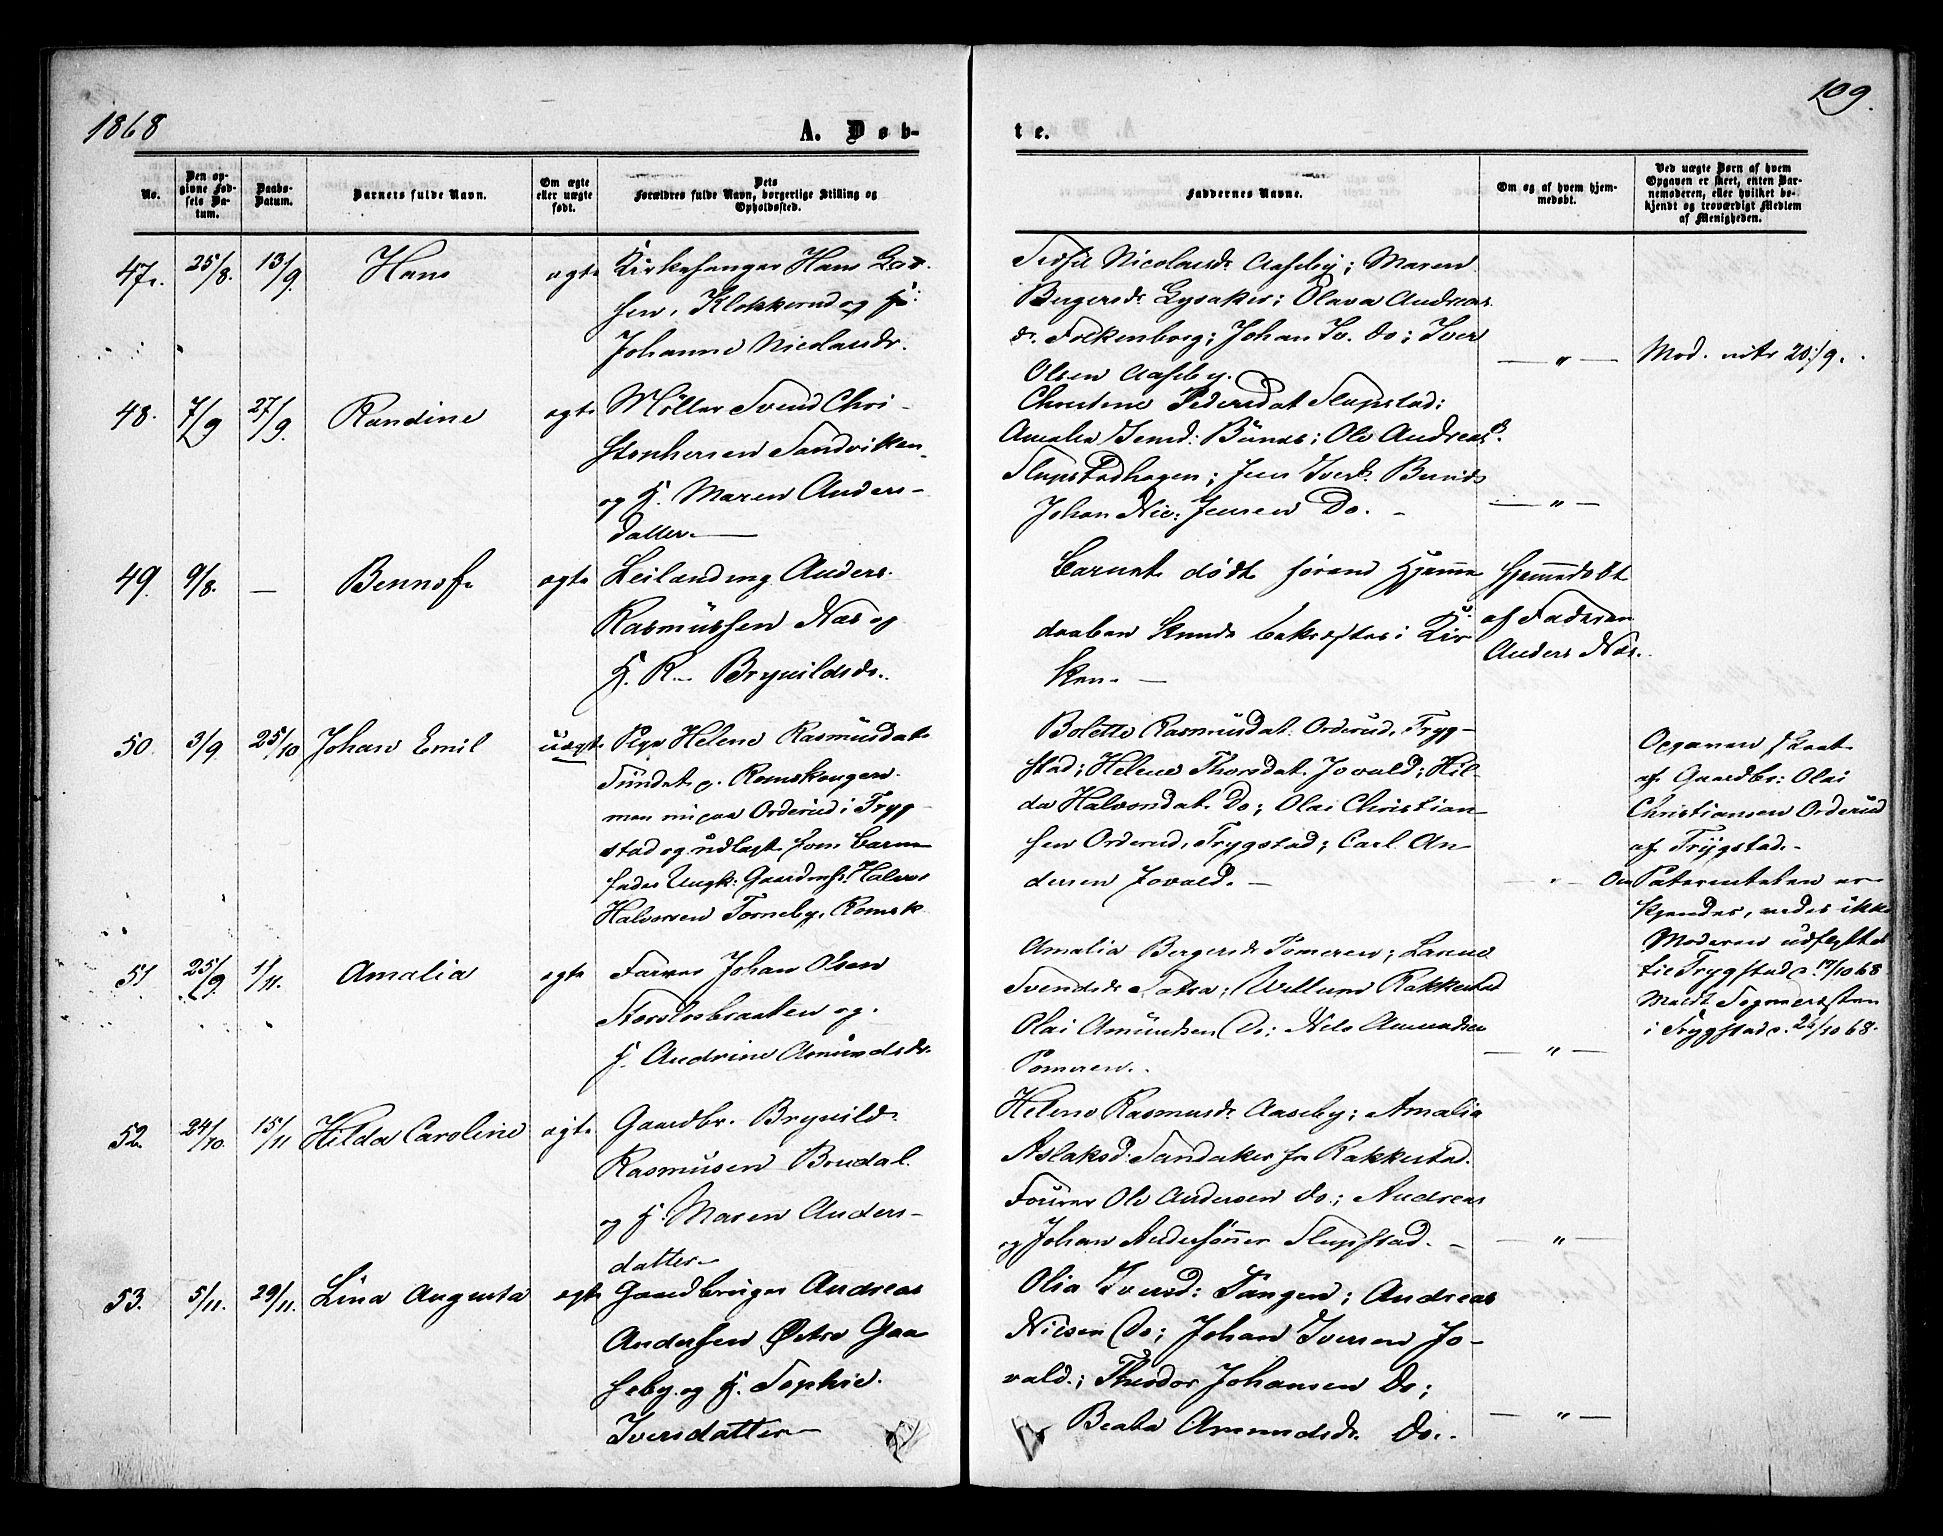 1868
109.
A. Døb-
te.
No.
Den op-
givne Fød-
sels Da-
tum.
Daabs-
Datum.
Barnets fulde Navn.
Om ægte
eller uægte
født.
Dets
Forældres fulde Navn, borgerlige Stilling og
Opholdssted.
Faddernes Navne.
Om og af hvem hjem-
medøbt.
Ved uægte Børn af hvem
Opgaven er skeet, enten Bar-
nemoderen, eller hvilket be-
kjendt og troværdigt Medlem
af Menigheden.
47. 25/8. 13/9. Hans ægte
Kirkesanger Hans Lar-
sen, Klokkerud og H:
Johanne Nicolaisdr.
Nicolaisdr Aaseby; Maren
Bergersdr Lysaker; Olava Andreas
dr. Folkenborg; Johan Iv. do; Iver
Olsen Aaseby.
— " —
Mod. 20/9.
48. 7/9 27/9. Randine ægte
Møller Svend Chri-
stophersen Sandviken
og H. Maren Anders-
datter.
Christine Pedersdat Slupstad;
Amalia Bunds; Ole Andreas
Slupstadhagen; Jens Bunds
Johan Nic: Jensen Do. -
— " —
49. 9/8. — ægte
Leilænding Anders
Rasmussen Næs og
H. R— Brynildsdr.
Barnet døde førend Hjemme
daaben kunde bekræftes i Kir
ken. —
Hjemmedøbt
af Faderen
Anders Næs.
50. 3/9 25/10 Johan Emil uægte
Pige Helene Rasmusdat
Romskougen
Orderud i Tryg-
stad og udlagt som Barne
fader Ungk: Gaardmss. Halvor
Halvorsen Torneby, Romsk
Bolette Rasmusdat. Orderud, Tryg-
stad; Helene Thorsdat. Jovald; Hil-
da Halvorsdat. Do; Olai Christian-
sen Orderud, Trygstad; Carl An-
dersen Jovald. —
Opgaven skeet
af Gaardbr: Olai
Christiansen Orderud
af Trygstad. -
Om Paterniteten er-
kjendes, vides ikke
Moderen udflyttet
til Trygstad d. 17/10 68
Meldt Sognepræsten
i Trygstad d. 26/10 68.
51 25/9. 1/11. Amalia ægte
Farver Johan Olsen
Storslosbraaten og
H. Andrine Amundsdr.
Amalia Bergersdr Tomeren;
Svendsdr Rakkestad
Olai Amundsen Do; Nels Amundsen
Tomeren.
— " —
52. 24/10. 15/11 Hilda Caroline ægte
Gaardbr. Brynild
Rasmusen Brudal
og H. Maren Anders-
datter
Helene Rasmusdr Aaseby; Amalia
Aslaksd: Sandaker fra Rakkestad.
Ole Andersen do; Andreas
og Johan Anderssønner Slupstad. —
— " —
53. 5/11. 29/11. Lina Augusta ægte
Gaardbruger Andreas
Andersen Østre Gaa
seby og H. Sophie
Iversdatter
Olia Iversd: Tangen; Andreas
Nilsen Do; Johan Iversen Jo-
vald.; Theodor Johansen Do;
Amundsdr. Do.
— " —